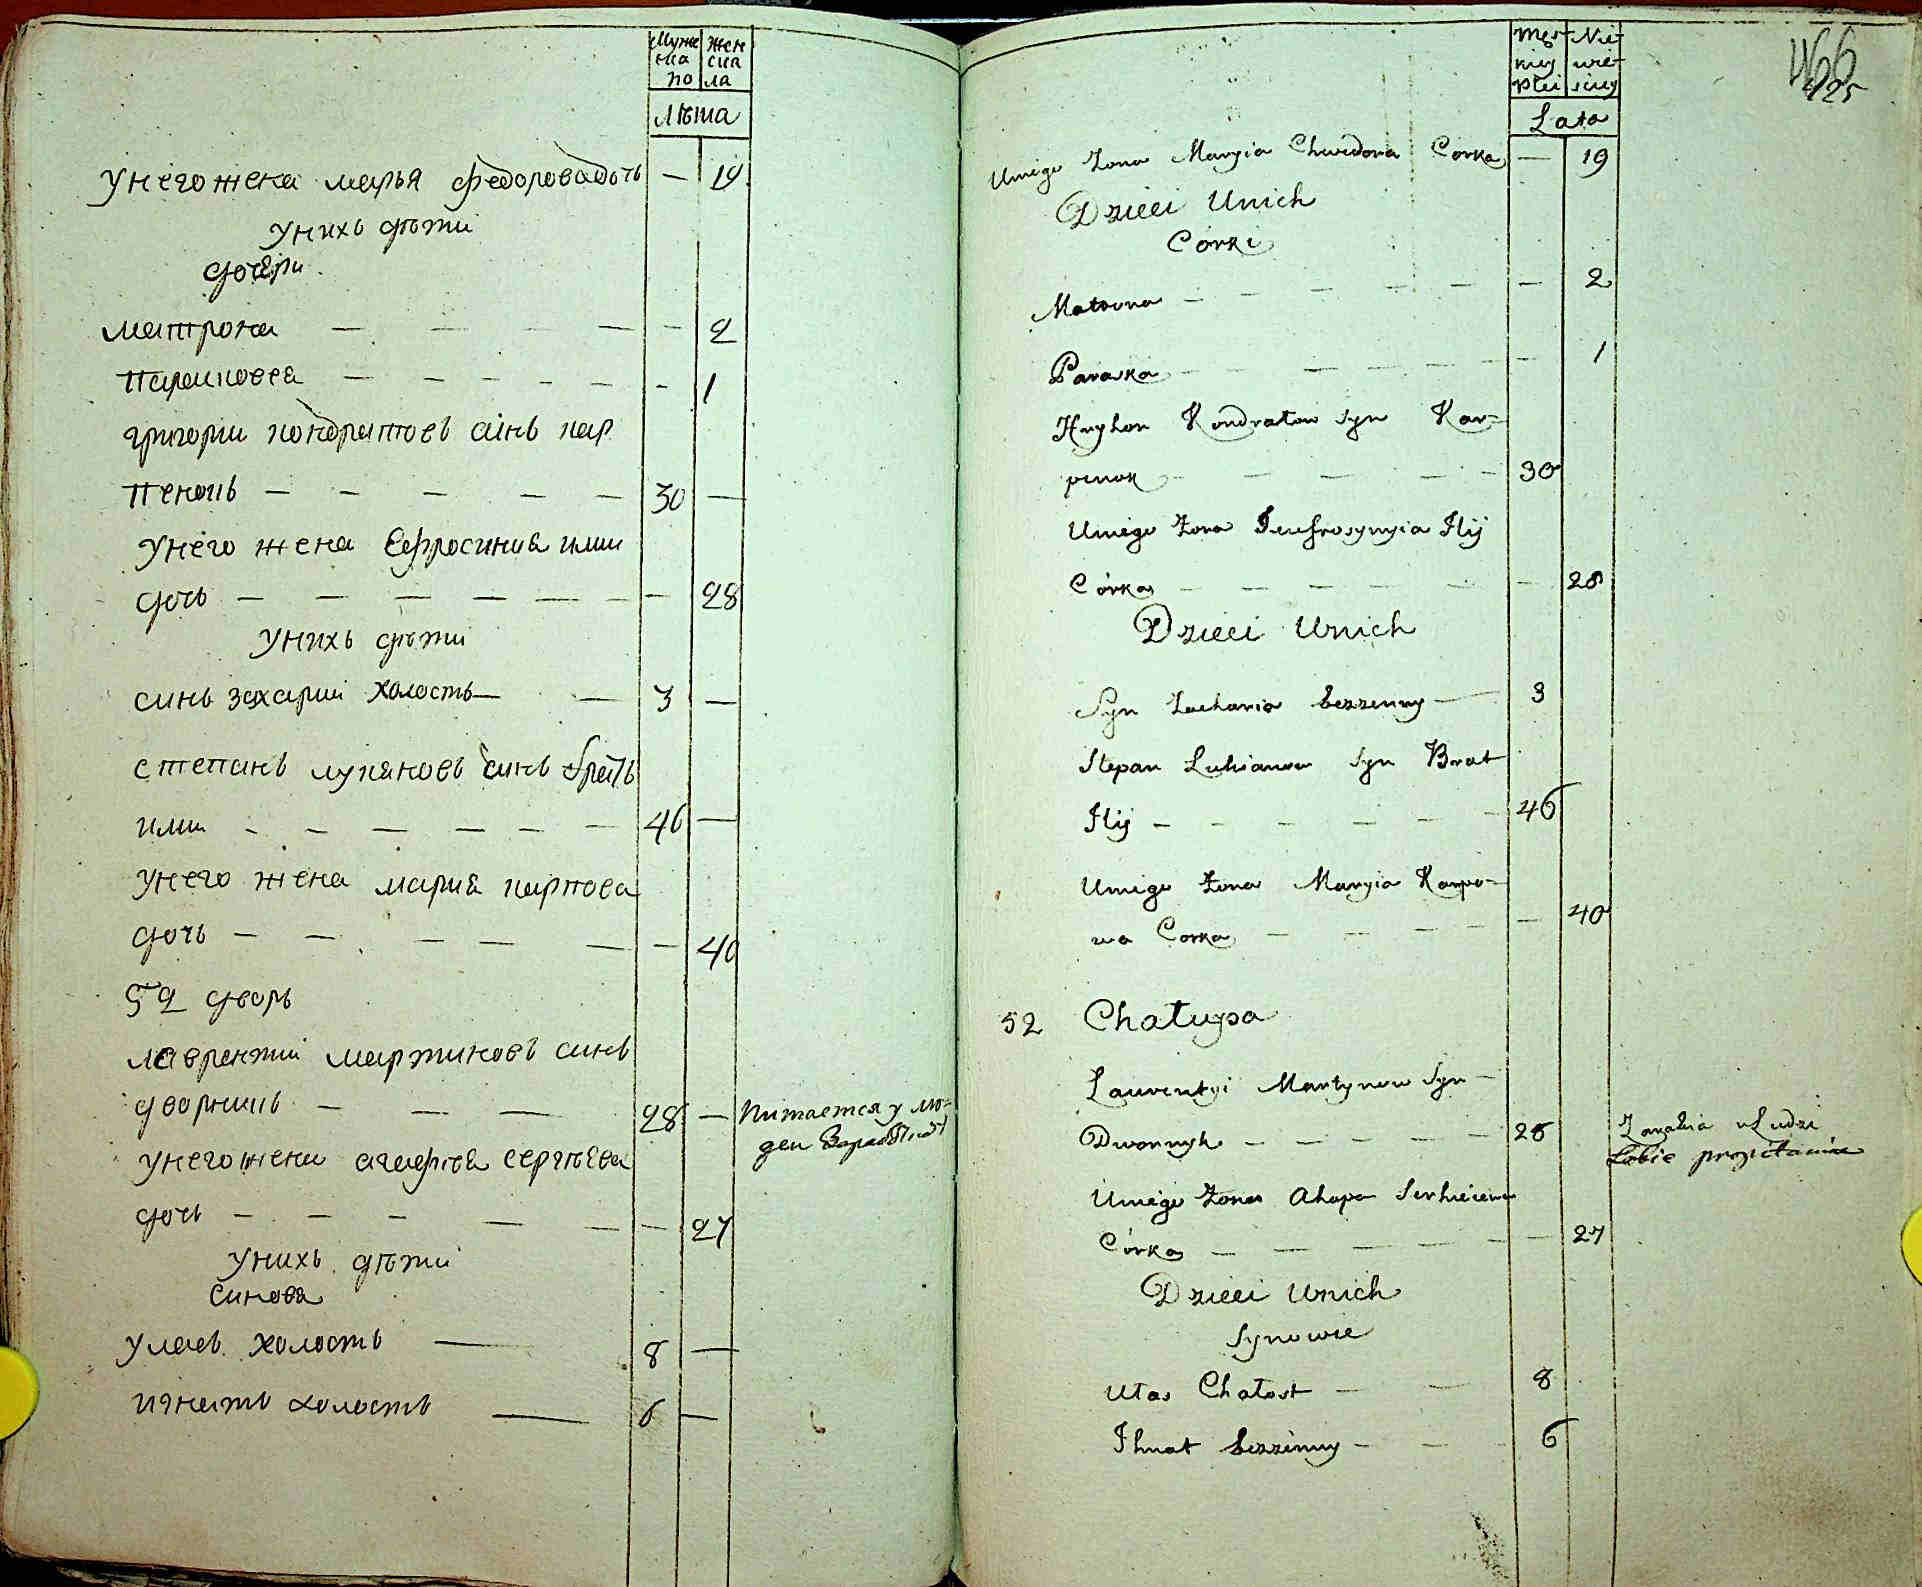 Муже
ска
по
жен
ска
ла
Лѣта
Унего жена марья федорова дочь — 19
Унихъ дѣти
дочери
матрона — — — — — 2
парасковея — — — — — — 1
григории кондратовъ синъ кар
пенокъ — — — — — 30 —
Унего жена Ефросиния илии
дочь — — — — — — — 28
Унихъ дѣти
синъ захарии холостъ — — 3 —
степанъ лукяновъ синъ братъ
илии — — — — — — 46 —
Унего жена мария карпова
дочь — — — — — — 40
52 дворъ
лаврентии мартиновъ синъ
дворникъ — — — 28 — питается у лю=
деи
Унего жена агафия сергѣева
дочь — — — — — — 27
Унихъ дѣти
Синовя
уласъ холостъ — 8 —
игнатъ холостъ — 6 —
466
425
męs-
kiey
płci
Nie-
wie-
sciey
Lata
Uniego Zona Maryia Chwedora Corka — 19
Dzieci Unich
Córki
Matrona — — — — — — — 2
Paraska — — — — — — 1
Hryhor Kondratow syn Kar-
penok — — — — — 30
Uniego Zona Jeufrosynyia Ilij
Córka — — — — — — — 28
Dzieci Unich
Syn Zacharia bezzenny — 3
Stepan Lukianow Syn Brat
Ilij — — — — — — 46
Uniego Zona Maryia Karpo-
wa Corka — — — — — — 40
52 Chałupa
Laurentyi Martynow Syn —
Dwornyk — — — — — 28 Zarabia u Ludzi
Sobie
Uniego Zona Ahapa Serhieiewa
Córka — — — — — — 27
Dzieci Unich
Synowie
Ułas Chałost — — 8
Ihnat bezzenny — — 6